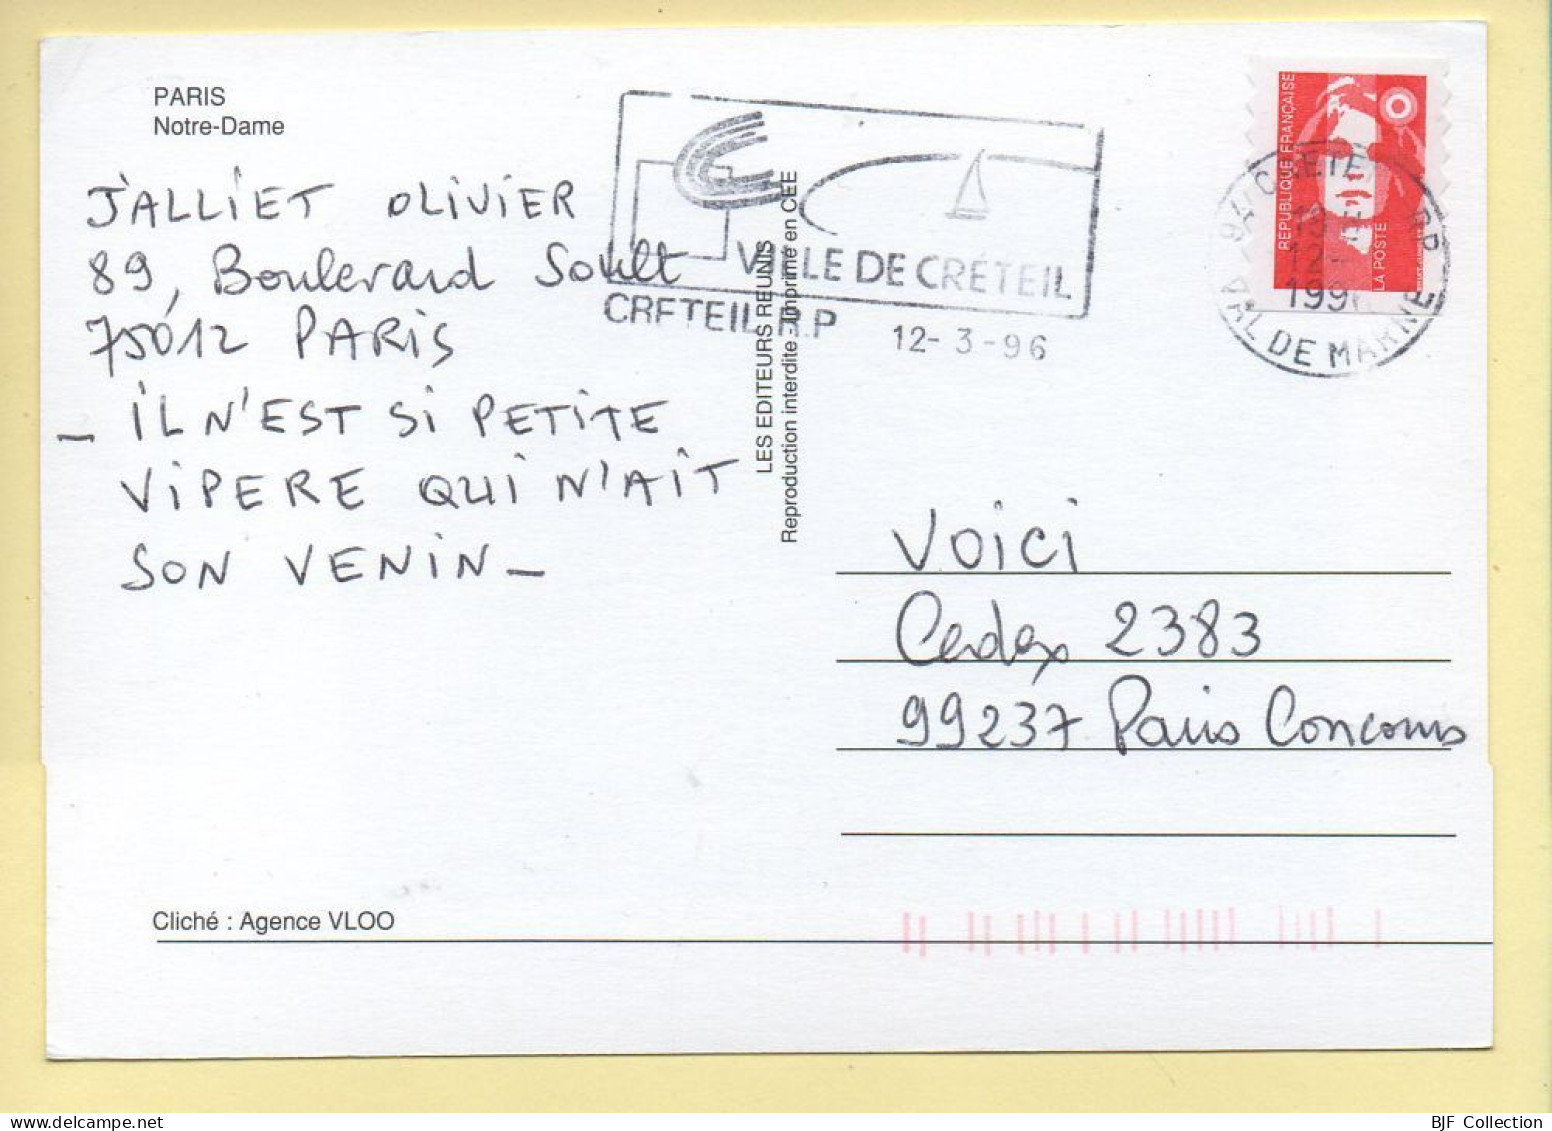 PARIS
Notre-Dame
J'ALLIET OLIVIER
89, Boulevard Soult
75012 PARIS
- IL N'EST SI PETITE
VIPERE QUI N'AIT
SON VENIN -
VILLE DE CRÉTEIL
CRETEIL R.P
12-3-96
LES EDITEURS REUNIS
Reproduction interdite - Imprimé en CEE
REPUBLIQUE FRANÇAISE
LA POSTE
94 CRETEIL R.P.
12-
VAL DE MARNE
VOICI
Cedex 2383
99237 Paris Concours
Cliché : Agence VLOO
BJF Collection